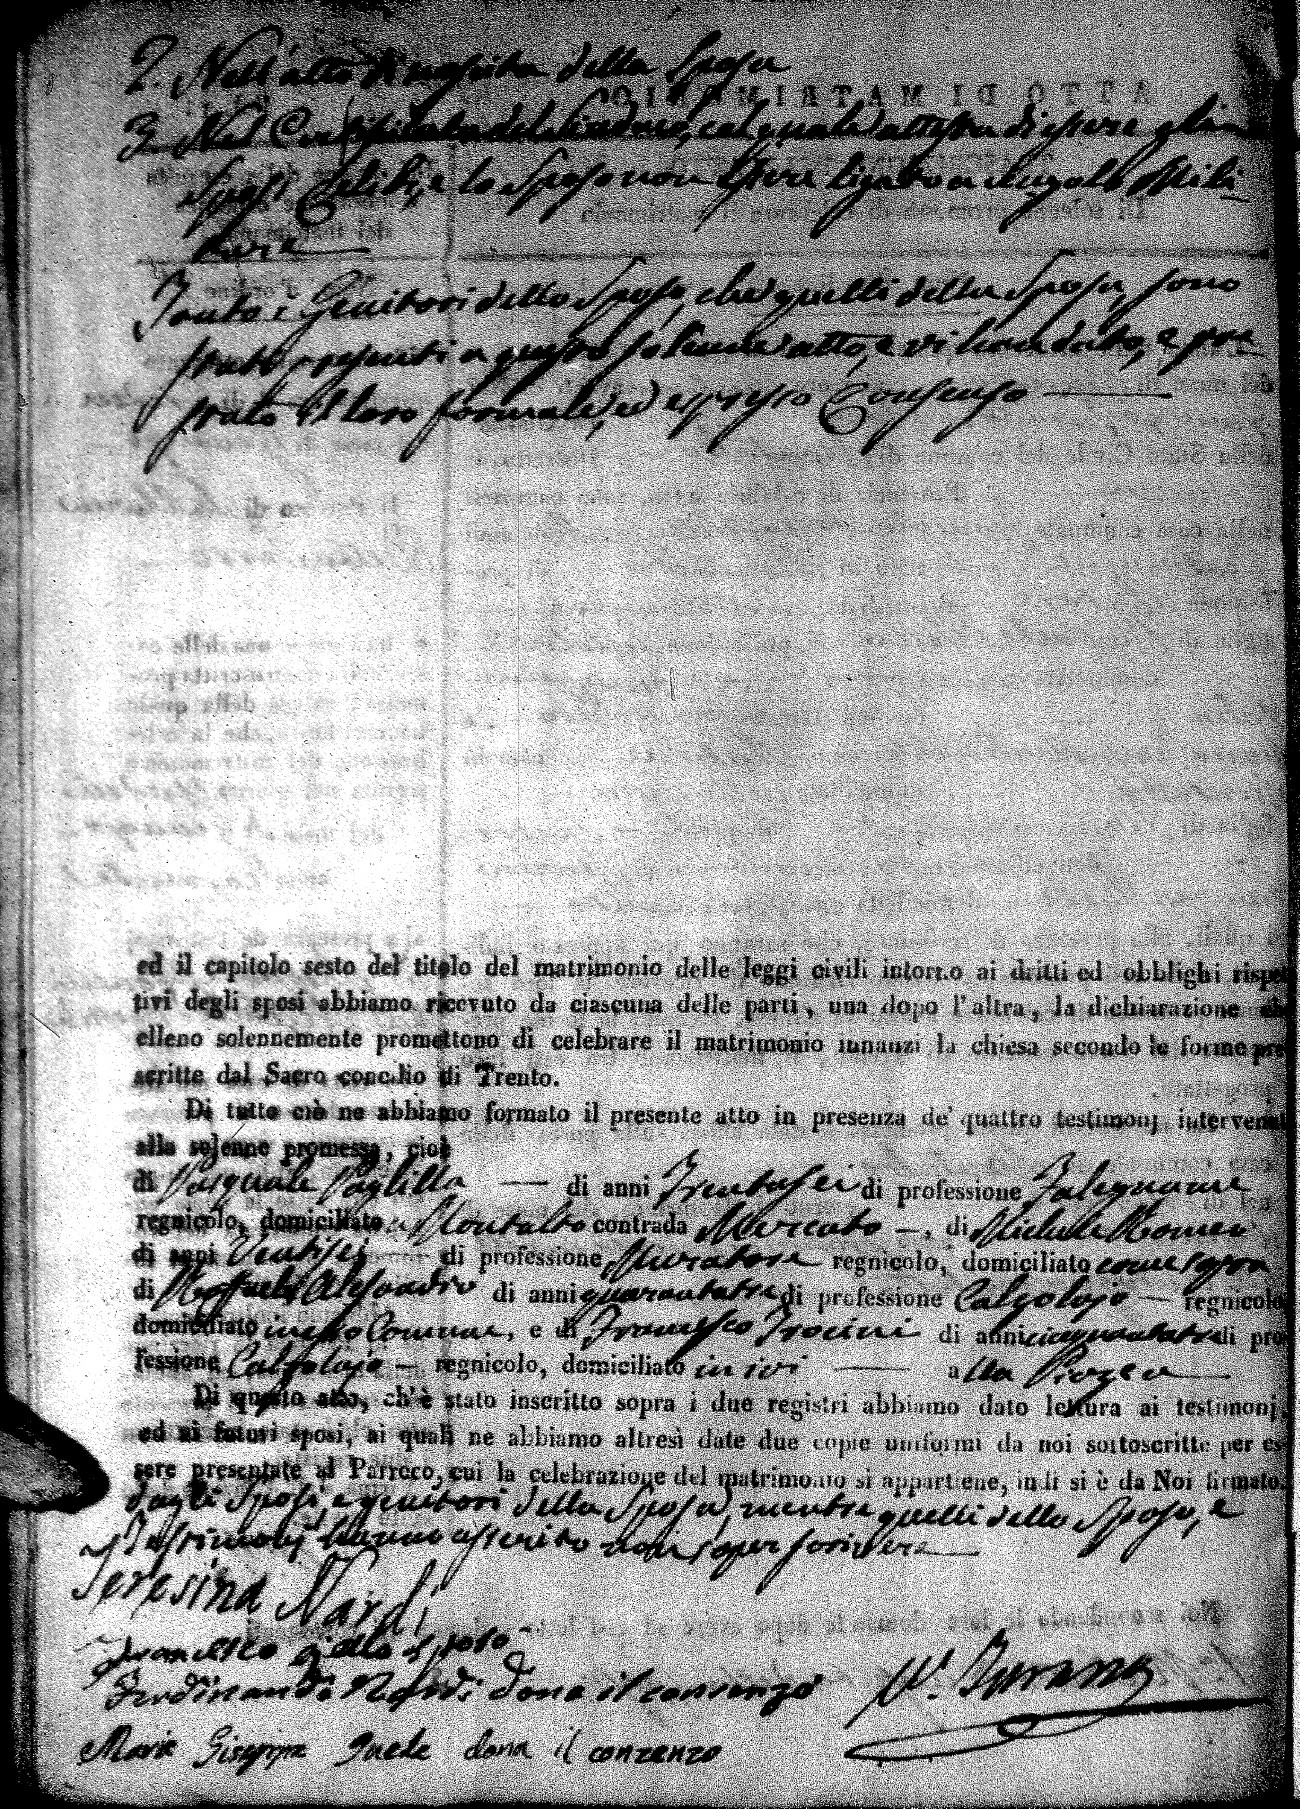 2. Nell'atto di nascita della Sposa
3. Nel Certificato del Sindaco, col quale attesta di essere gl'in
Sposi Celibi, e lo Sposo non essere ligato a alcuno Mili
tare
Tanto i Genitori dello Sposo, che quelli della Sposa, sono
stati presenti a questo solenne atto, e vi han dato, e pre
stato il loro formale, ed espresso Consenso
ed il capitolo sesto del titolo del matrimonio delle leggi civili intorno ai dritti ed obblighi rispet
tivi degli sposi abbiamo ricevuto da ciascuna delle parti, una dopo l'altra, la dichiarazione che
elleno solennemente promettono di celebrare il matrimonio innanzi la chiesa secondo le forme pre
scritte dal Sacro concilio di Trento.
Di tutto ciò ne abbiamo formato il presente atto in presenza de' quattro testimonj intervenuti
alla solenne promessa, cioè
di Pasquale Paglilla — di anni Trentasei di professione Falegname
regnicolo, domiciliato a Montalto contrada Mercato —, di Michele Romeo
di anni Ventisei di professione Muratore regnicolo, domiciliato come sopra
di Raffaele Alesandro di anni quarantatre di professione Calzolajo — regnicolo
domiciliato in esso Comune, e di Francesco Trocini di anni cinquantatre di pro
fessione Calzolajo — regnicolo, domiciliato in ivi — alla Piazza
Di questo atto, ch'è stato inscritto sopra i due registri abbiamo dato lettura ai testimonj,
ed ai futuri sposi, ai quali ne abbiamo altresì date due copie uniformi da noi sottoscritte per es
sere presentate al Parroco, cui la celebrazione del matrimonio si appartiene, indi si è da Noi firmato.
dagli Sposi, e genitori della Sposa, mentre quelli dello Sposo, e
Testimonj hanno asserito non saper scrivere
Teresina Nardi
Francesco sposo
Ferdinando Nardi dona il consenzo
Maria Giseppa dona il conzenzo